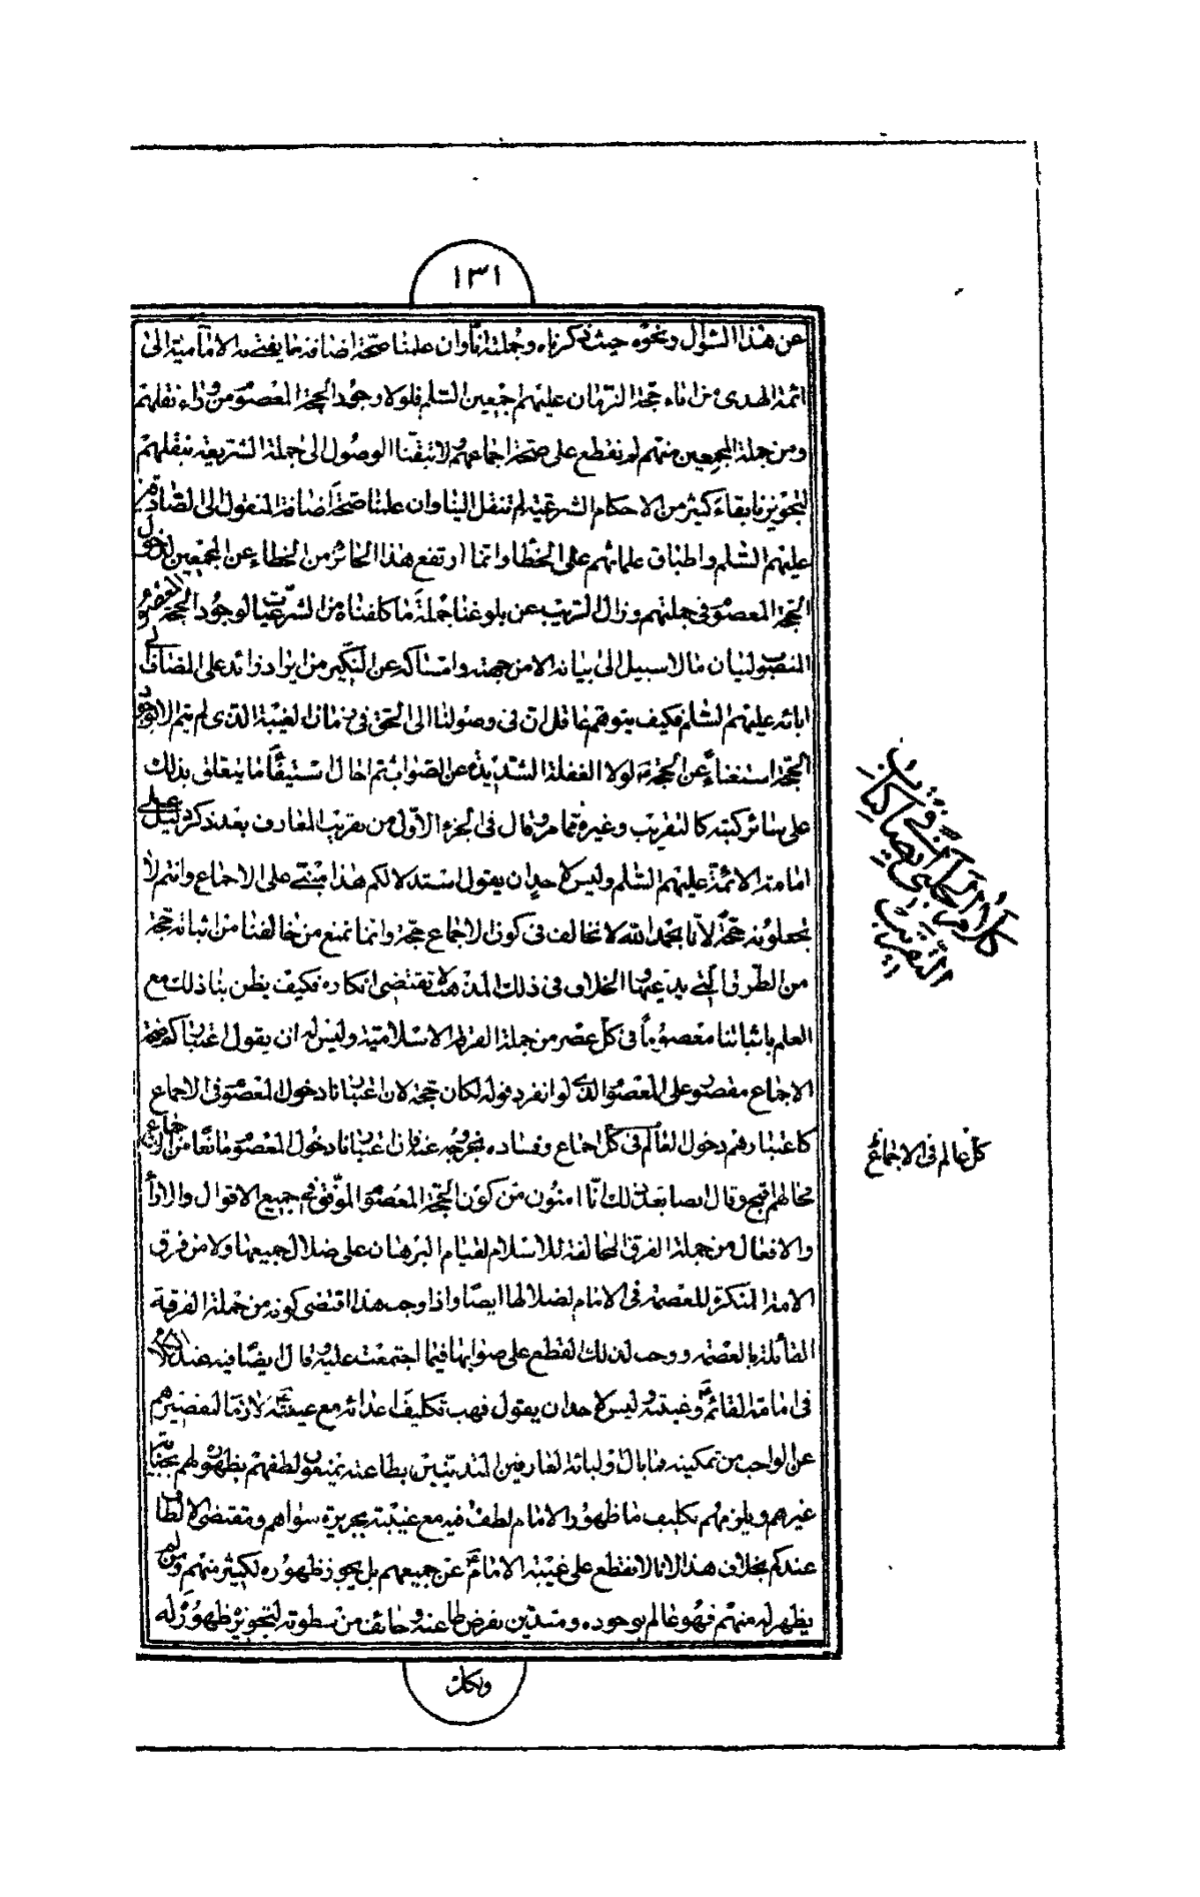 ١٣١
عن هذا السؤال ونحوه حيث ذكرناه وجملته انا وان علمنا صحة اضافة ما يفتى به الامامية الى
ائمة الهدى من اباء حجة الزمان عليهم اجمعين السلم فلولا وجود الحجة المعصوم من وراء نقلهم
ومن جملة المجمعين منهم لم نقطع على صحة اجماعهم ولا تيقنا الوصول الى جملة الشريعة بنقلهم
لتجويزنا بقاء كثير من الاحكام الشرعية لم تنقل الينا وان علمنا صحة اضافة المنقول الى الصادقين
عليهم السلم واطباق علمائهم على الخطا وانما ارتفع هذا الجائز من الخطاء عن المجمعين لدخول
الحجة المعصوم فى جملتهم وزال الريب عن بلوغنا جملة ما كلفناه من الشرعيات لوجود الحجة المعصوم
المنصوب لبيان ما لا سبيل الى بيانه الا من جهته وامساكه عن النكير من ايراد زائد على المضاف الى
ابائه عليهم السلم فكيف يتوهم عاقل ان فى وصولنا الى الحق فى زمان الغيبة الذى لم يتم الا بوجود
الحجة استغناء عن الحجة لولا الغفلة الشديدة عن الصواب ثم احال استيفاء ما يتعلق بذلك
على سائر كتبه كالتقريب وغيره مما مر وقال فى الجزء الاول من تقريب المعارف بعد ذكر دليل على
امامة الائمة عليهم السلم وليس لاحد ان يقول استدلالكم هذا مبنى على الاجماع وانتم لا
تجعلونه حجة لانا بحمد الله لا نخالف فى كون الاجماع حجة وانما نمنع من خالفنا من اثباته حجة
من الطرق التى يدعيها الخلاف فى ذلك المذهب لا تقتضى انكاره فكيف يظن بنا ذلك مع
العلم باثباتنا معصوما فى كل عصر من جملة الفرقة الاسلامية وليس له ان يقول اعتباركم صحة
الاجماع مقصور على المعصوم الذى لو انفرد قوله لكان حجة لان اعتبارنا دخول المعصوم فى الاجماع
كاعتبارهم دخول العالم فى كل اجماع وفساده بخروجه عنه فان اعتبارنا دخول المعصوم مانعا من الاجماع
فحالهم اقبح وقال ايضا بعد ذلك انا امنون من كون الحجة المعصوم الموفق فى جميع الاقوال والاراء
والافعال من جملة الفرق المخالفة للاسلام لقيام البرهان على ضلال جميعها ولا من فرق
الامة المنكرة للعصمة فى الامام لضلالها ايضا واذا وجب هذا اقتضى كونه من جملة الفرقة
القائلة بالعصمة ووجب لذلك القطع على صوابها فيما اجتمعت عليه وقال ايضا فيه عند الكلام
فى امامة القائم ع وغيبته وليس لاحد ان يقول فهب تكليف اعدائه مع غيبته ع لازما لتقصيرهم
عن الواجب من تمكينه فما بال اوليائه العارفين المتدينين بطاعته يمنعون لطفهم بظهوره لهم بجناية
غيرهم ويلزمهم تكليف ما ظهور الامام لطف فيه مع غيبته بجريرة سواهم ومقتضى الالطاف
عندكم بخلاف هذا لانا لا نقطع على غيبة الامام ع عن جميعهم بل يجوز ظهوره لكثير منهم ومن لم
يظهر له منهم فهو عالم بوجوده ومتدين بفرض طاعته وخائف من سطوته لتجويز ظهوره له
ولكل
كلام الحلبى فى كتاب
التقريب ايضا
كل عالم فى الاجماع